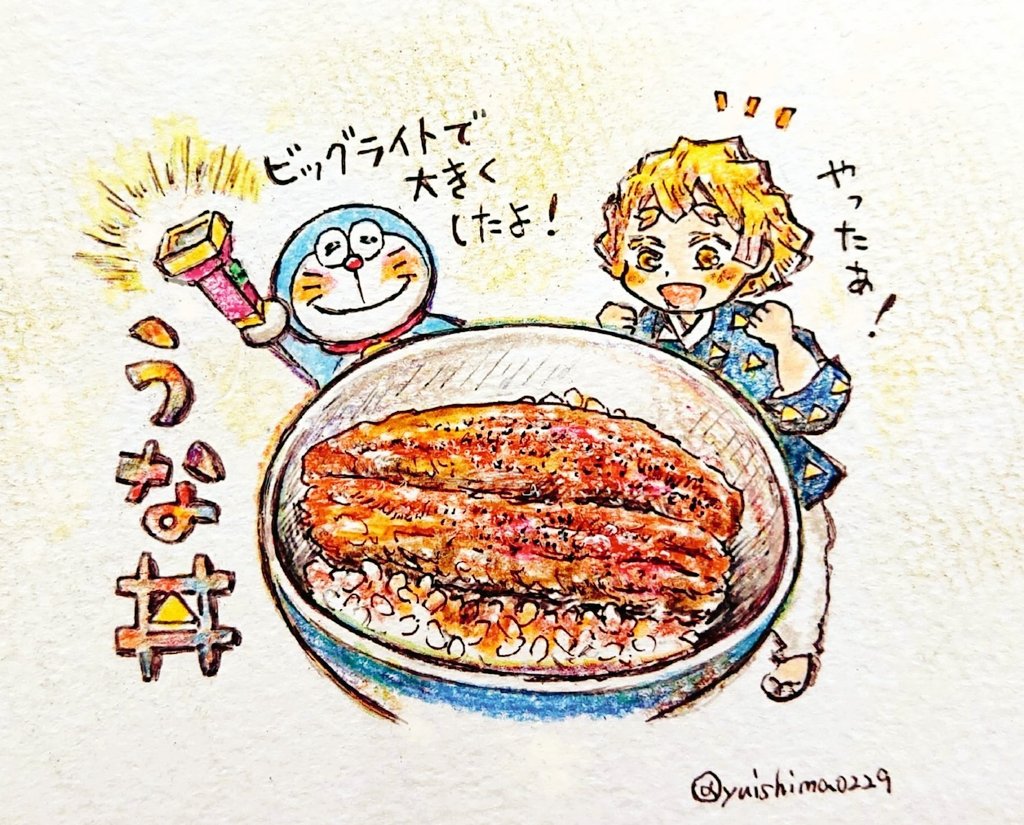 ビッグライトで
大きく
したよ！
やったぁ！
うな丼
@yuishima0229